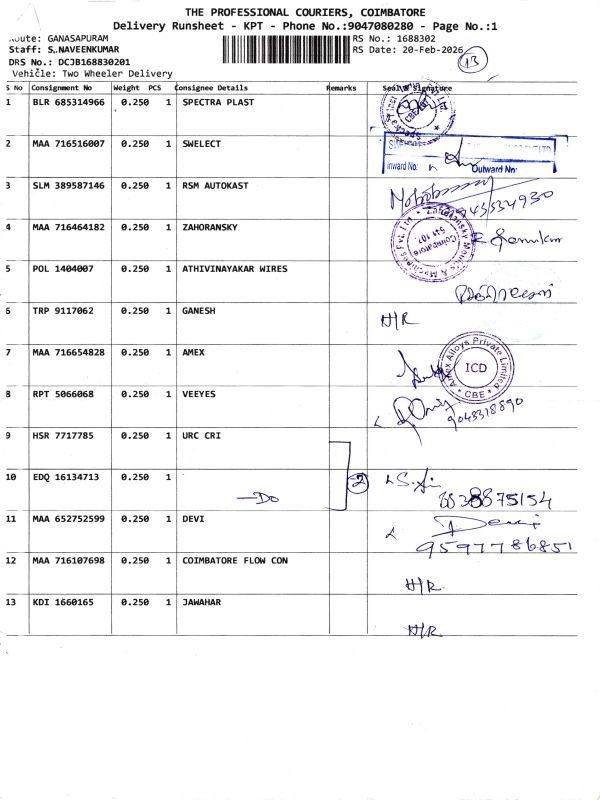 THE PROFESSIONAL COURIERS, COIMBATORE
Delivery Runsheet - KPT - Phone No.:9047080280 - Page No.:1
Route: GANASAPURAM
Staff: S.NAVEENKUMAR
DRS No.: DCJB168830201
Vehicle: Two Wheeler Delivery
RS No.: 1688302
RS Date: 20-Feb-2026
13
S No Consignment No Weight PCS Consignee Details Remarks Seal & Signature
1 BLR 685314966 0.250 1 SPECTRA PLAST
2 MAA 716516007 0.250 1 SWELECT
Inward No: Outward No:
3 SLM 389587146 0.250 1 RSM AUTOKAST
4 MAA 716464182 0.250 1 ZAHORANSKY
Coimbatore 641 107
5 POL 1404007 0.250 1 ATHIVINAYAKAR WIRES
6 TRP 9117062 0.250 1 GANESH H/R
7 MAA 716654828 0.250 1 AMEX
Amex Alloys Private Limited ICD CBE
8 RPT 5066068 0.250 1 VEEYES
9043318890
9 HSR 7717785 0.250 1 URC CRI
10 EDQ 16134713 0.250 1 —Do 2
8838875154
11 MAA 652752599 0.250 1 DEVI Devi
9597786851
12 MAA 716107698 0.250 1 COIMBATORE FLOW CON H/R
13 KDI 1660165 0.250 1 JAWAHAR H/R